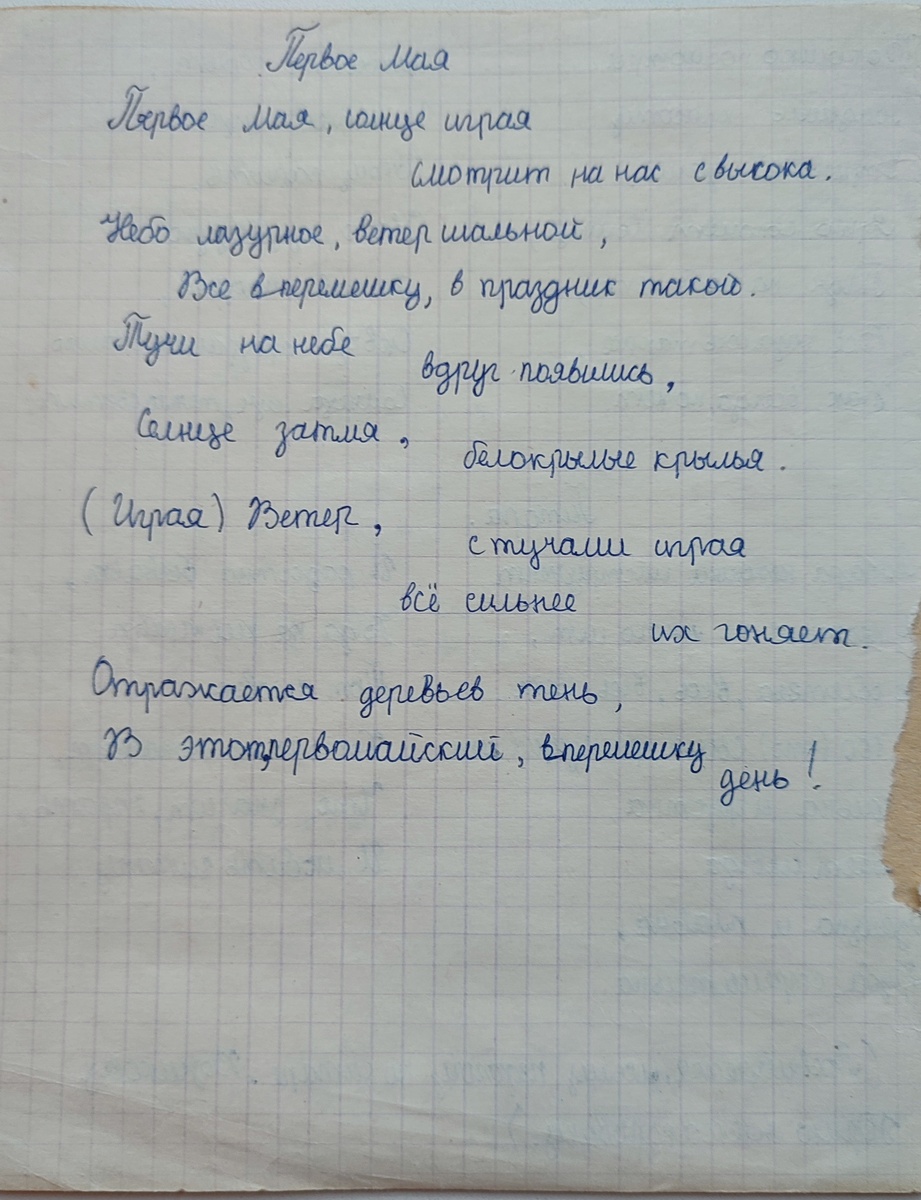 Первое Мая
Первое Мая, солнце играя
смотрит на нас с высока.
Небо лазурное, ветер шальной,
Все вперемешку, в праздник такой.
Тучи на небе
вдруг появились,
Солнце затмя,
белокрылые крылья.
(Играя) Ветер,
с тучами играя
всё сильнее
их гоняет.
Отражается деревьев тень,
В этот, первомайский, вперемешку
день!